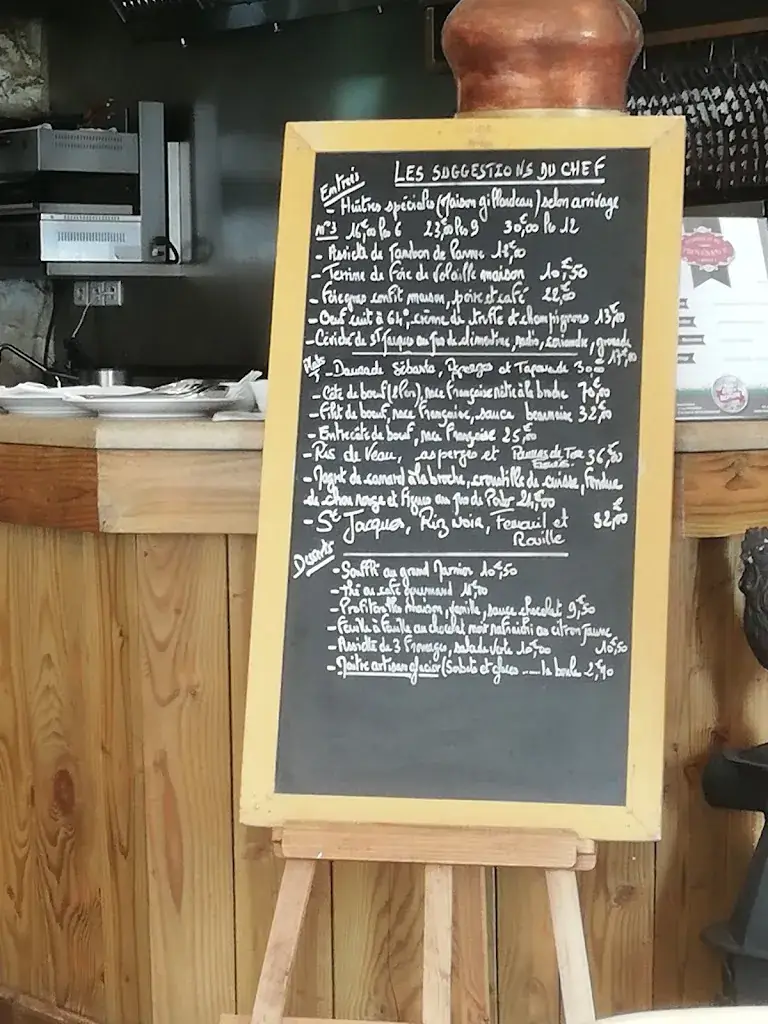 LES SUGGESTIONS DU CHEF
Entrées
- Huîtres spéciales (Maison gillardeau) selon arrivage
n°3 16€00 les 6 23,00 les 9 30€,00 les 12
- Assiette de Jambon de Parme 18€,00
- Terrine de Foie de Volaille maison 10€,50
- Foie gras confit maison, poire et café 22€,00
- Oeuf cuit à 64°, crème de truffe et champignons 13€,00
- Céviche de St Jacques au jus de clémentine, coriandre, grenade
17€,00
Plats
- Daurade Sébaste, Asperges et 30
- Côte de boeuf (2 Pers), race Française rôtie à la broche 70€,00
- Filet de boeuf, race Française, sauce bearnaise 32€,00
- Entrecôte de boeuf, race Française 25€,00
- Ris de Veau, asperges et Pommes de Terre 36€,00
- Magret de canard à la broche, croustille de cuisse, fondue
de chou rouge et figues au jus de Porto 24€,00
- St Jacques, Riz noir, Fenouil et 32€,00
Rouille
Desserts
- Soufflé au grand Marnier 10€,50
- Thé ou café gourmand 11€,00
- Profiteroles Maison, vanille, sauce chocolat 9€,50
- Feuille à feuille au chocolat noir rafraichi au citron jaune
10€50
- Assiette de 3 Fromages, salade verte 10€00
- Maître artisan glacier (Sorbets et glaces ----- la boule 2€,90
PROVENANCE